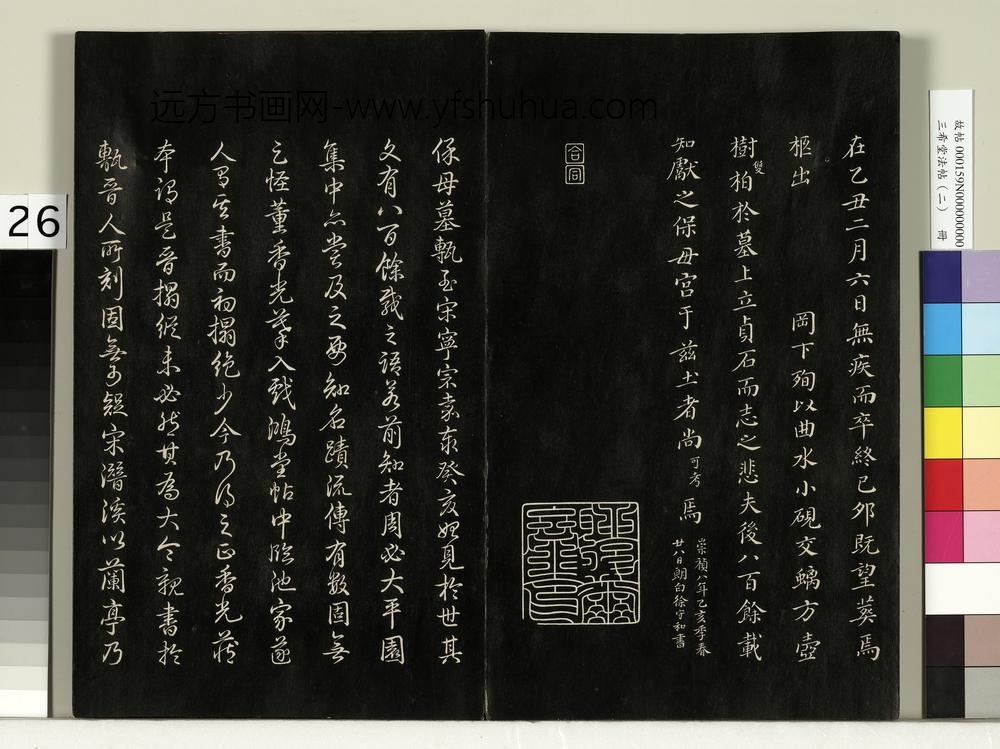 在乙丑二月六日無疾而卒終已夘既望葬焉
柩出
岡下殉以曲水小硯交螭方壺
樹雙柏於墓上立貞石而志之悲夫後八百餘載
知獻之保母宮于兹土者尚可考焉
崇禎八年乙亥季春
廿八日朗白徐守和書
合同
保母墓甎至宋寧宗嘉泰癸亥始見於世其
文有八百餘載之語若前知者周必大平園
集中亦嘗及之要知名蹟流傳有數固無
之怪董香光革入戲鴻堂帖中臨池家遂
人習其書而初搨絶少今乃得之正香光藏
本謂是晉搨縱未必然其為大令親書於
甎晉人所刻固無可疑宋潛溪以蘭亭乃
远方书画网-www.yfshuhua.com
26
故帖 000159N000000000
三希堂法帖(二) 冊